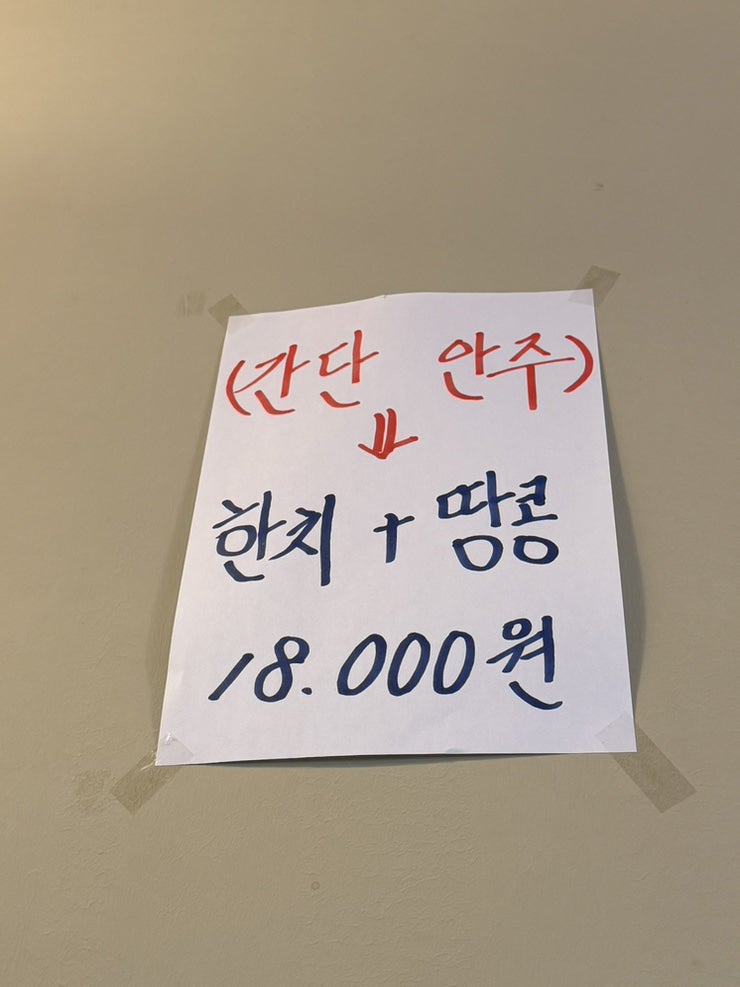 (간단 안주)
⇓
한치 + 땅콩
18.000원